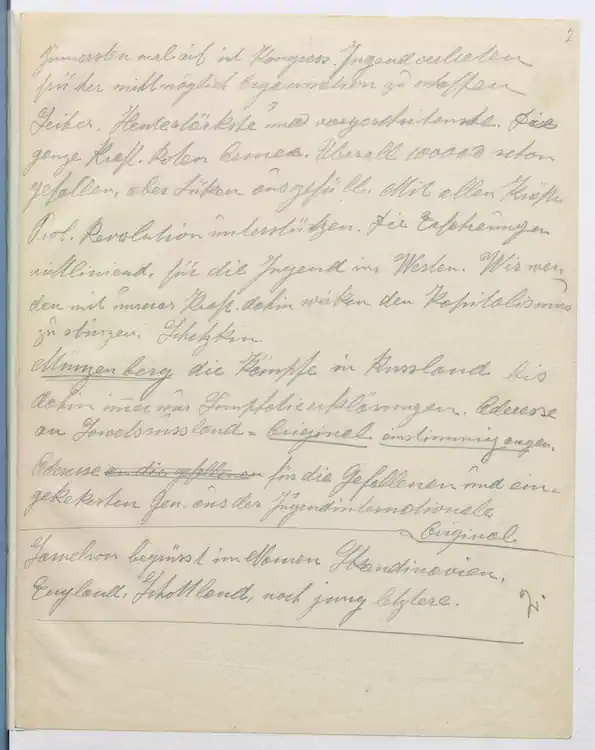 7
Zum ersten mal auf int Kongress. Jugend vertreten
früher nicht möglich Organisation zu schaffen
Leiber. Heute stärkste und vorgeschrittenste. Die
ganze Kraft. Roten Armee. Überall 10000 schon
gefallen, aber Lüken ausgefüllt. Mit allen Kräften
Prol. Revolution unterstützen. Die Erfahrungen
richtliniend, für die Jugend im Westen. Wir wer-
den mit unserer Kraft dahin wirken den Kapitalismus
zu stürzen. Schatzkin
Münzenberg die Kämpfe in Russland bis
dahin immer nur Sympatieerklärungen. Aderesse
an Sowetrussland = Original einstimmig angen.
Aderesse an die gefallenen für die Gefallenen und ein-
gekekerten Gen. aus der Jugendinternationale
Original
Samelson begrüsst im Namen Skandinavien,
England, Schottland, noch jung letztere.
Z.